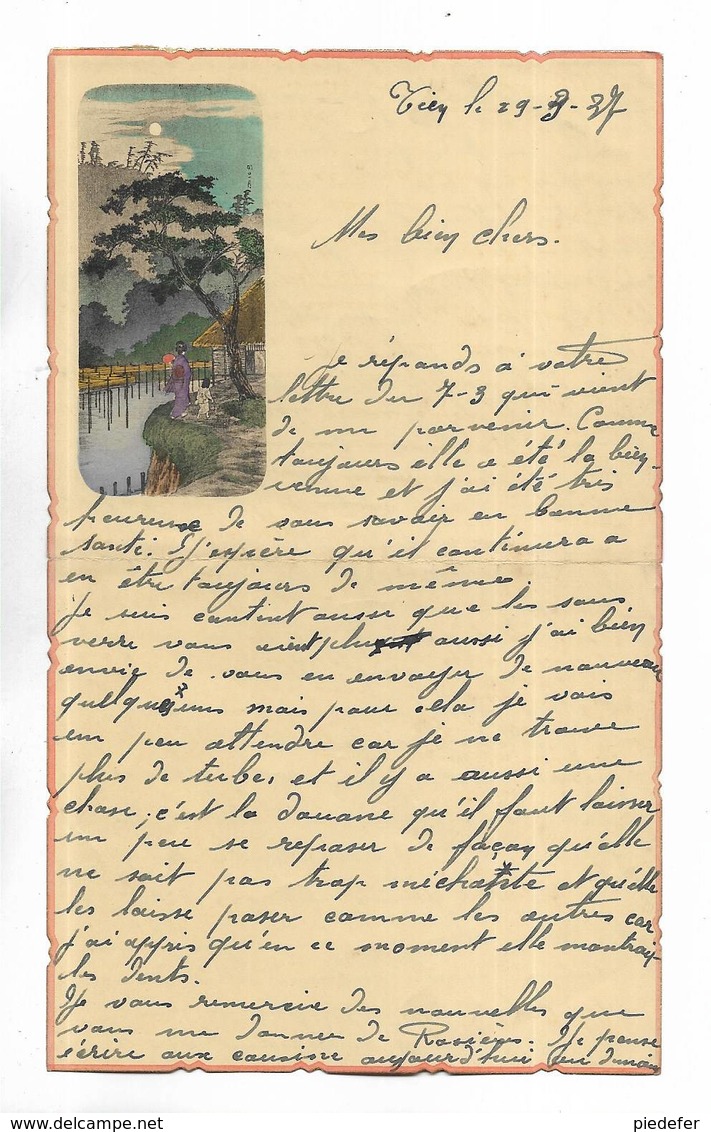 Tien le 29-3-37
Mes bien chers.
Je réponds à votre
lettre du 7-3 qui vient
de me parvenir. Comme
toujours elle a été la bien-
venue et j'ai été très
heureuse de vous savoir en bonne
santé. J'espère qu'il continuera a
en être toujours de même.
Je suis content aussi que les sous
verre vous aient plu aussi j'ai bien
envie de vous en envoyer de nouveau
quelques uns mais pour cela je vais
un peu attendre car je ne trouve
plus de tube, et il y a aussi une
chose, c'est la douane qu'il faut laisser
un peu se reposer de façon qu'elle
ne soit pas trop méchante et qu'elle
les laisse paser comme les autres car
j'ai appris qu'en ce moment elle montrait
les dents.
Je vous remercie des nouvelles que
vous me donnee de Rosières. Je pense
écrire aux cousins aujourd'hui ou demain
piedefer